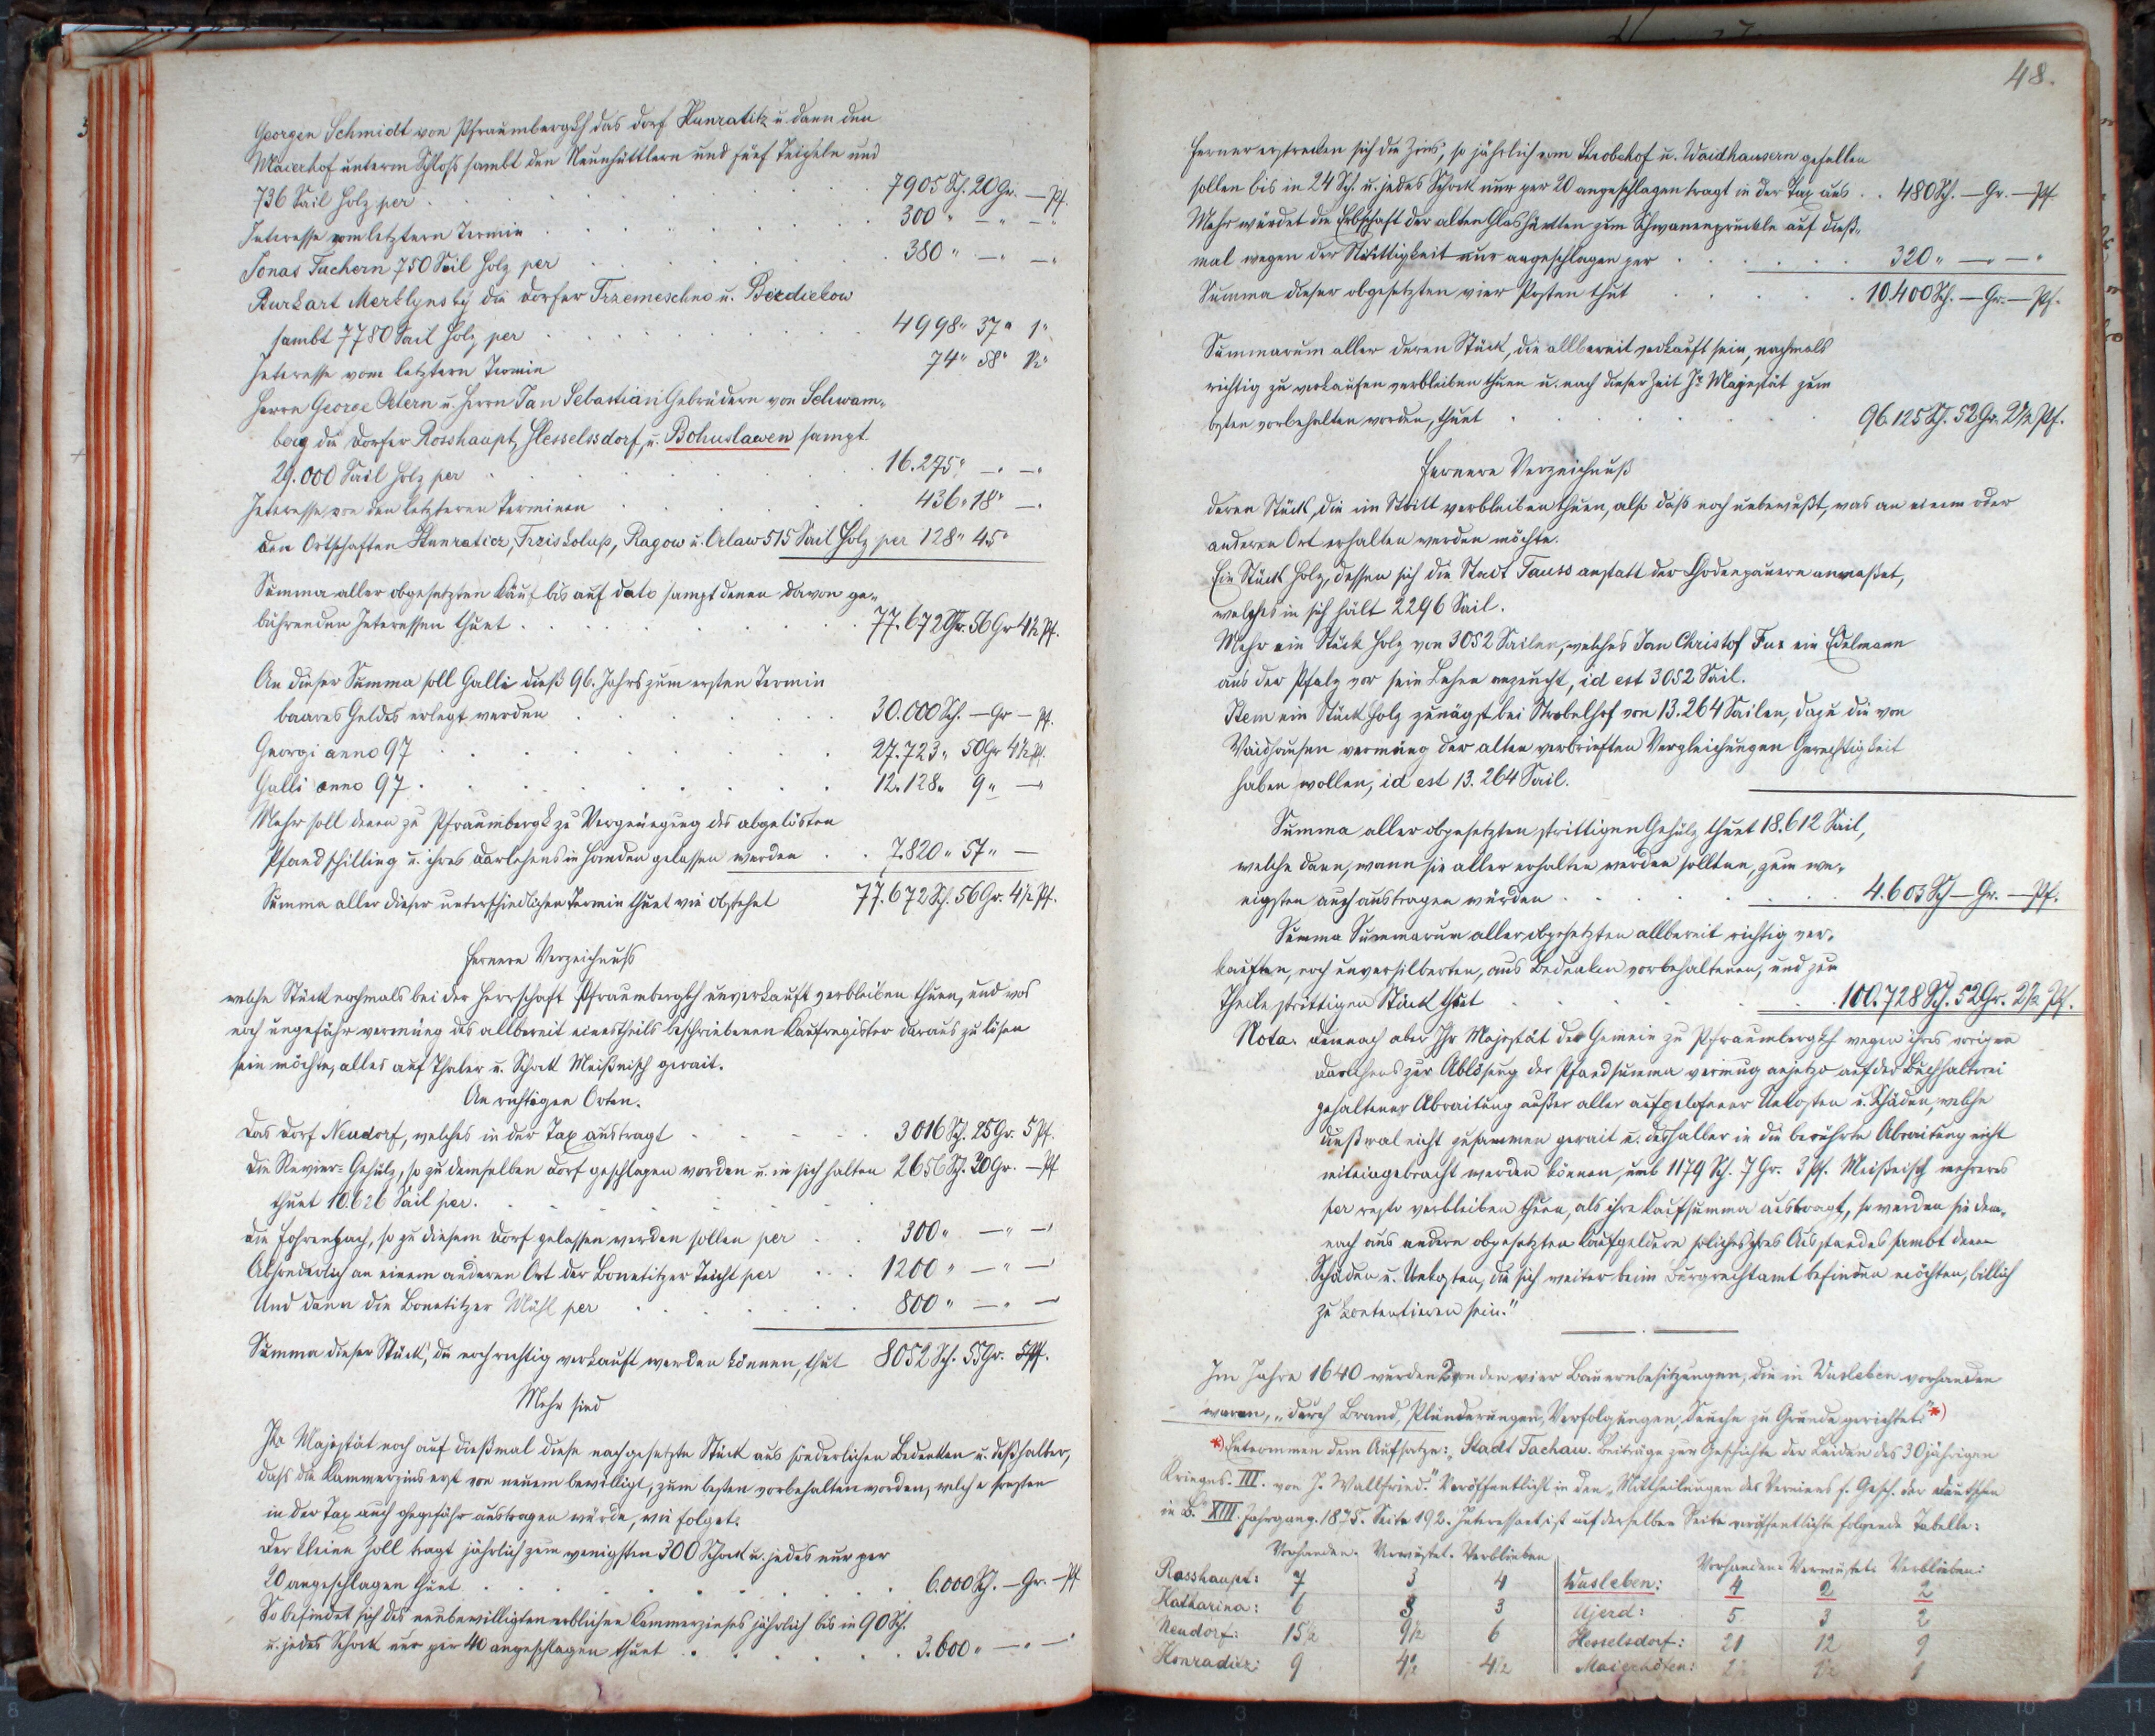 Georgen Schmidt von Pfraumbergkh das Dorf Kunratitz u. dann den
Maierhof unterm Schloß sambt den Neunhüttlern und fünf Teicheln und
736 Sail Holz per . . . . . 7905 Sch. 20 Gr. — Pf.
Interesse vom letztern Termin . . . . . 300 " — " — "
Jonas Tuchern 750 Sail Holz per . . . . . 380 " — " — "
Burkart Merklynský die Dörfer Trzemeschno u.
sambt 7780 Sail Holz per . . . . . 4998 " 37 " 1 "
Interesse vom letztern Termin 74 " 58 " ½ "
Herrn George Petern u. Herrn Jan Sebastian Gebrüdern von Schwam-
berg die Dörfer Rosshaupt, Hesselsdorf, u. Bohuslawen sampt
29.000 Sail Holz per . . . . . 16.275 " — " — "
Interesse von den letzteren Terminen . . . . . 436 " 18 " — "
Den Ortschaften Kunraticz, Trziskolup, Ragow u. Orlaw 515 Sail Holz per 128 " 45 "
Summa aller obgesetzten Käuf bis auf dato sampt denen davon ge-
bührenden Interessen thuet . . . . . 77.672 Sch. 56 Gr 4½ Pf.
An dieser Summa soll Galli dieß 96. Jahrs zum ersten Termin
baares Geldes erlegt werden . . . . . 30.000 Sch. — Gr — Pf.
Georgi anno 97 . . . . . 27.723 " 50 Gr 4½ Pf.
Galli anno 97 . . . . . 12.128 " 9 " —
Mehr soll denen zu Pfraumbergk zu Vergnügung des abgelösten
Pfandschilling u. ihres Darlehens in Handen gelassen werden . . 7.820 " 57 " —
Summa aller dieser unterschiedlichen Termin thuet wie obstehet 77.672 Sch. 56 Gr. 4½ Pf.
Fernere Verzeichnuß
welche Stück nachmals bei der Herrschaft Pfraumbergkh unverkauft verbleiben thuen, und was
noch ungefähr vermüng des allbereit einestheils beschriebenen Kaufregister daraus zu lösen
sein möchte, alles auf Thaler u. Schock Meißnisch gerait.
An richtigen Orten.
Das Dorf Neudorf, welches in der Tax austragt . . . . . 3016 Sch. 25 Gr. 5 Pf.
Die Revier-Gehülz, so zu demselben Dorf geschlagen worden u. in sich halten 2656 Sch. 30 Gr. — Pf.
thuet 10.626 Sail per.
Die Fohrenbach, so zu diesem Dorf gelassen werden sollen per . . 300 " — " —
Absonderlich an einem anderen Ort der Bonetitzer Teicht per . . . 1200 " — " —
Und dann die Bonetitzer Mühl per . . . . . 800 " — " —
Summa dieser Stück, die noch richtig verkauft werden können, thut 8052 Sch. 55 Gr. 5 Pf.
Mehr sind
Ihr Majestät noch auf dießmal diese nachgesetzte Stück aus sonderlichen Bedenken u. deßhalber,
daß die Kammerzins erst von neuem bewilligt, zum besten vorbehalten worden, welche sonsten
in der Tax auch ohngefähr austragen würde, wie folget.
Der kleine Zoll tragt jährlich zum wenigsten 300 Schock u. jedes nur per
20 angeschlagen thuet . . . . . 6.000 Sch. — Gr. — Pf
So befindet sich des neubewilligten erblichen Kammerzinses jährlich bis in 90 Sch.
u. jedes Schock nur per 40 angeschlagen thuet . . . . . 3.600 " — " —
48.
Ferner erstrecken sich die Zins, so jährlich vom Strobehof u. Waidhausern gefallen
sollen bis in 24 Sch. u. jedes Schock nur per 20 angeschlagen tragt in der Tax aus . . 480 Sch. — Gr. — Pf
Mehr würdet die Erbschaft der alten Glashütten zum Schwanenpruckle auf dieß-
mal wegen der Strittigkeit nur angeschlagen per . . . . . 320 " — " — "
Summa dieser obgesetzten vier Posten thut . . . . . 10.400 Sch. — Gr. — Pf.
Summarum aller deren Stück, die allbereit verkauft sein, nachmals
richtig zu verkaufen verbleiben thuen u. nach dieser Zeit Ir Majestät zum
besten vorbehalten worden, thuet . . . . . 96.125 Sch. 52 Gr. 2½ Pf.
Fernere Verzeichnuß
deren Stück, die im Stritt verbleiben thuen, also daß noch unbewußt, was an einem oder
anderen Ort erhalten werden möchte.
Ein Stück Holz, dessen sich die Stadt Tauss anstatt der Chodenpauern anmaßet,
welches in sich hält 2296 Sail.
Mehr ein Stück Holz von 3052 Sailen, welches Jan Christof Fux ein Edelmann
aus der Pfalz vor sein Lehen anzeucht, id est 3052 Sail.
Item ein Stück Holz zunägst bei Strobelhof von 13.264 Sailen, dazu die von
Waidhausen vermüng der alten verbrieften Vergleichungen Gerechtigkeit
haben wollen, id est 13.264 Sail.
Summa aller obgesetzten strittigen Gehülz thuet 18.612 Sail,
welche dann, wann sie aller erhalten werden sollten, zum we-
nigsten auch austragen würden . . . . . 4.603 Sch — Gr. — Pf.
Summa Summarum aller obgesetzten allbereit richtig ver-
kauften, noch unversilberten, aus Bedenken vorbehaltenen, und zum
Theile strittigen Stück thut . . . . . 100.728 Sch. 52 Gr. 2½ Pf.
Nota. Demnach aber Ihr Majestät der Gemein zu Pfraumbergkh wegen ihres vorigen
Darlehens zur Ablösung der Pfandsumma vermüg anjetzo auf der Buchhalterei
gehaltener Abraitung außer aller aufgelofener Unkosten u. Schäden, welche
dießmal nicht zusammen gerait u. deßhalber in die berührte Abraitung nicht
miteingebracht werden können, umb 1179 Sch. 7 Gr. 3 Pf. Meißnisch mehreres
per resto verbleiben thuen, als ihre Kaufsumma austragt, so werden sie dem-
nach aus andern obgesetzten Kaufgeldern soliches ihres Ausstandes sambt denen
Schäden u. Unkosten, die sich weiter beim Burgrechtamt befinden möchten, billich
zu kontentieren sein."
Im Jahre 1640 wurden 2 von den vier Bauernbesitzungen, die in Wusleben vorhanden
waren, "durch Brand, Plünderungen, Verfolgungen, Seuche zu Grunde gerichtet." *)
*) Entnommen dem Aufsatze: "Stadt Tachau. Beiträge zur Geschichte der Leiden des 30jährigen
Krieges. III. von J. Wallfried." Veröffentlicht in den "Mittheilungen des Vereines f. Gesch. der Deutschen
in B." XIII. Jahrgang. 1875. Seite 192. Interessant ist auf derselben Seite veröffentlichte folgende Tabelle:
Vorhanden. Verwüstet. Verblieben Vorhanden. Verwüstet. Verblieben:
Rosshaupt: 7 3 4 Wusleben: 4 2 2
Katharina: 6 3 3 Ujezd: 5 3 2
Neudorf: 15½ 9½ 6 Hesselsdorf: 21 12 9
Konradicz: 9 4½ 4½ Maierhöfen: 2½ 1½ 1